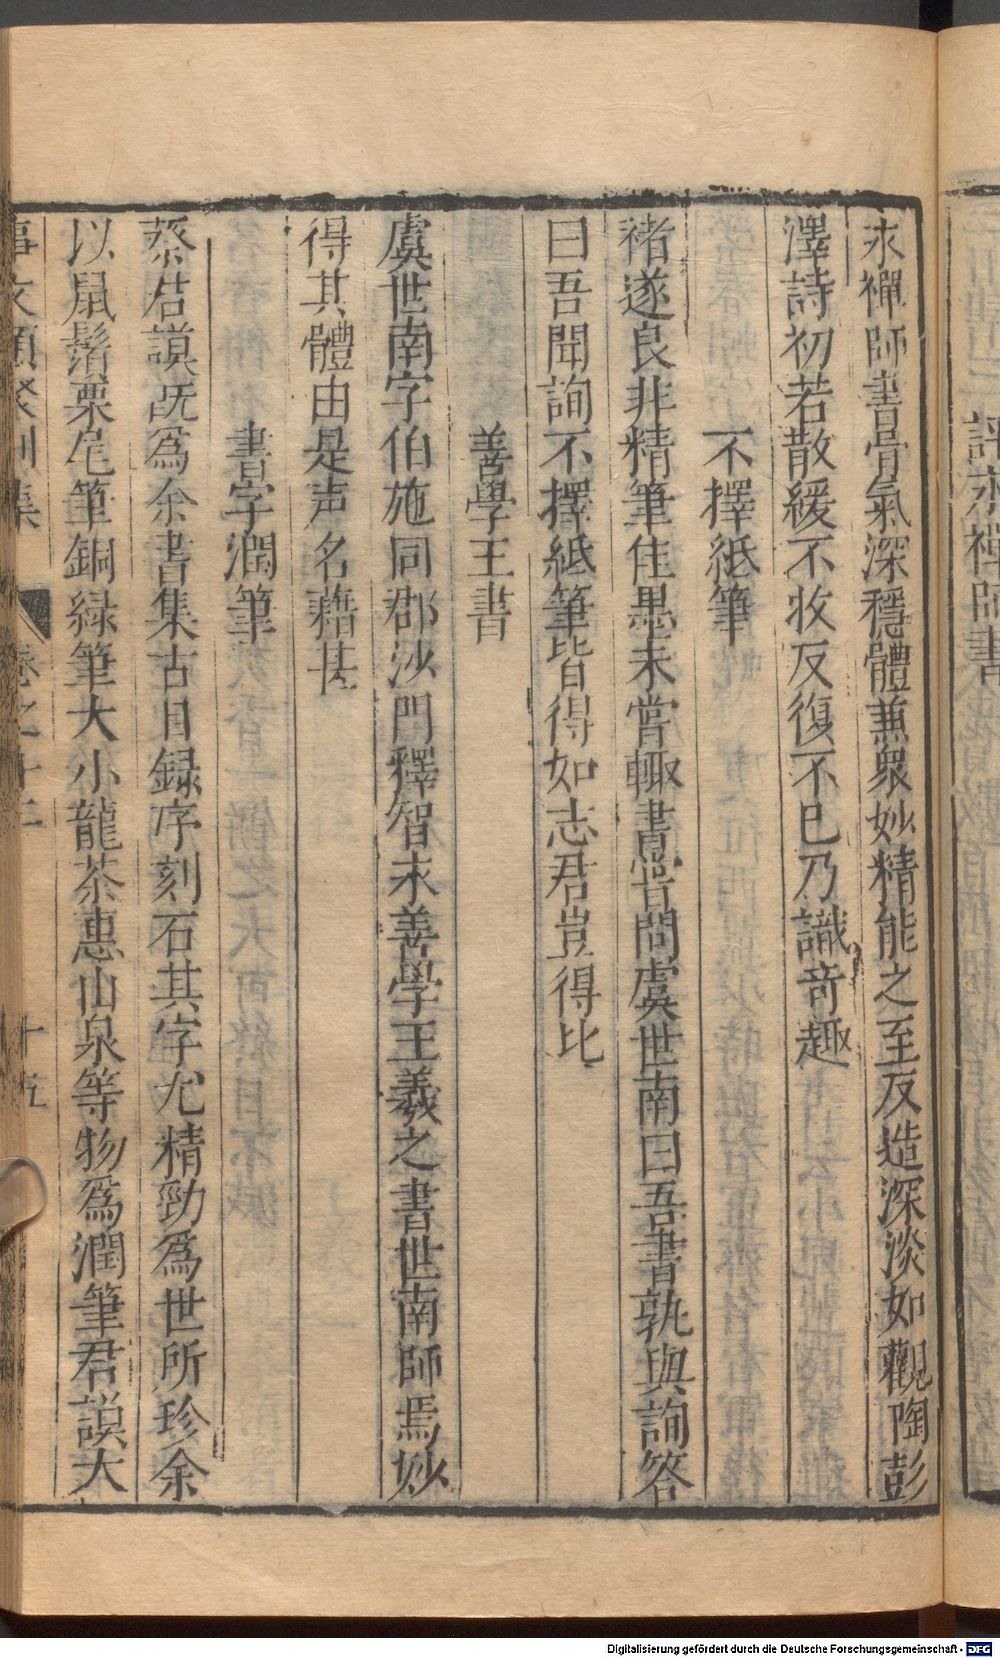 評永禪師書
永禪師書骨氣深穩體兼衆妙精能之至反造深淡如觀陶彭
澤詩初若散緩不收反復不已乃識奇趣
不擇紙筆
褚遂良非精筆佳墨未嘗輙書嘗問虞世南曰吾書孰與詢答
曰吾聞詢不擇紙筆皆得如志君豈得比
善學王書
虞世南字伯施同郡沙門釋智永善學王羲之書世南師焉妙
得其體由是声名藉甚
書字潤筆
蔡君謨既爲余書集古目録序刻石其字尤精勁爲世所珍余
以鼠鬚栗尾筆銅緑筆大小龍茶惠山泉等物爲潤筆君謨大
事文類聚別集 卷之十二 十五
Digitalisierung gefördert durch die Deutsche Forschungsgemeinschaft - DFG